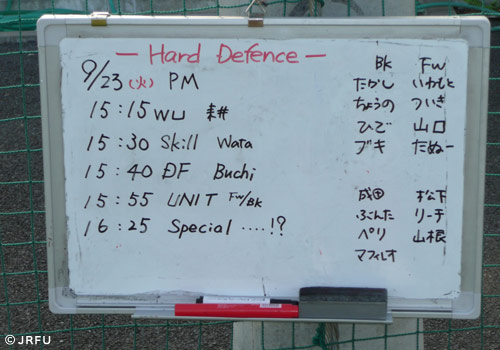 — Hard Defence —
9/23(火) PM
15:15 WU 耕
15:30 Skill Wata
15:40 DF Buchi
15:55 UNIT FW/BK
16:25 Special ....!?
Bk Fw
たかし いわもと
ちょうの ついき
ひで 山口
ブキ たぬー
成田 松下
ぶんた リーチ
ペリ 山根
マフィレオ
©JRFU